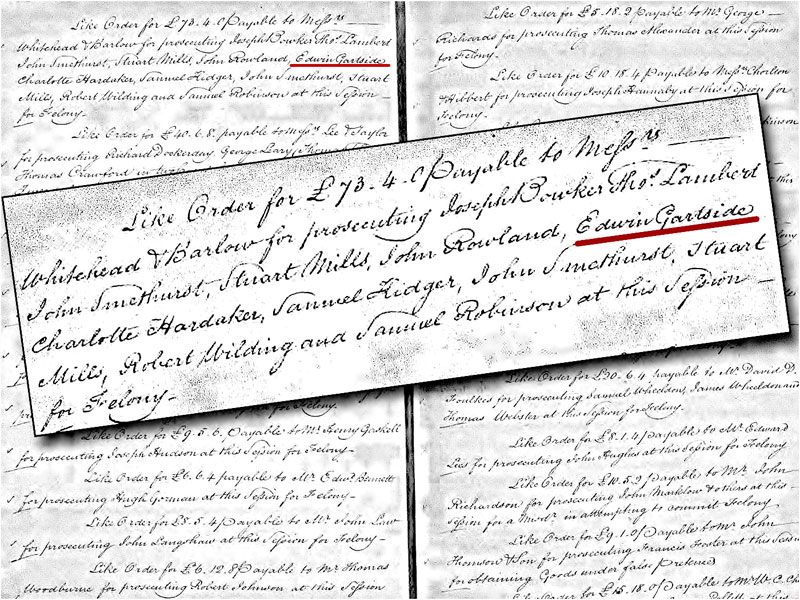 Like Order for £73-4-0 Payable to Messrs
Whitehead & Barlow for prosecuting Joseph Bowker Thos. Lambert
John Smethurst, Stuart Mills, John Rowland, Edwin Gartside
Charlotte Hardaker, Samuel Kidger, John Smethurst, Stuart
Mills, Robert Wilding and Samuel Robinson at this Session
for Felony-
Like Order for £40.6.8. payable to Messrs Lee & Taylor
for prosecuting Richard Dockerday George Leary Thomas
Thomas Crawford in two
Like Order for £73-4-0 Payable to Messrs
Whitehead & Barlow for prosecuting Joseph Bowker Thos. Lambert
John Smethurst, Stuart Mills, John Rowland, Edwin Gartside
Charlotte Hardaker, Samuel Kidger, John Smethurst, Stuart
Mills, Robert Wilding and Samuel Robinson at this Session
for Felony-
for Felony.
Like Order for £9.5.6. Payable to Mr. Henry Gaskell
for prosecuting Joseph Hudson at this Session for Felony-
Like Order for £6.6.4 payable to Mr. Edwd. Bennett
for prosecuting Hugh Gorman at this Session for Felony-
Like Order for £5.5.4 Payable to Mr. John Law
for prosecuting John Langshaw at this Session for Felony-
Like Order for £6.12.8 Payable to Mr Thomas
Woodburne for prosecuting Robert Johnson at this Session
Like Order for £5.18.2 Payable to Mr. George
Richards for prosecuting Thomas Alexander at this Session
for Felony.
Like Order for £10.18.4 Payable to Messrs Chorlton
& Hibbert for prosecuting Joseph Hannaby at this Session for
Like Order for £30.6.4 payable to Mr. David D.
Foulkes for prosecuting Samuel Wheeldon, James Wheeldon and
Thomas Webster at this Session for Felony.
Like Order for £8.1.4 Payable to Mr. Edward
Lees for prosecuting John Hughes at this Session for Felony
Like Order for £10.5.2 Payable to Mr. John
Richardson for prosecuting John Marklow & others at this
Session for a Misdr. in attempting to commit Felony
Like Order for £9.1.0 Payable to Mr. John
Thomson & Son for prosecuting Francis Foster at this Session
for obtaining Goods under false pretences
Like Order for £15.18.0 Payable to Mr W. C. Ch